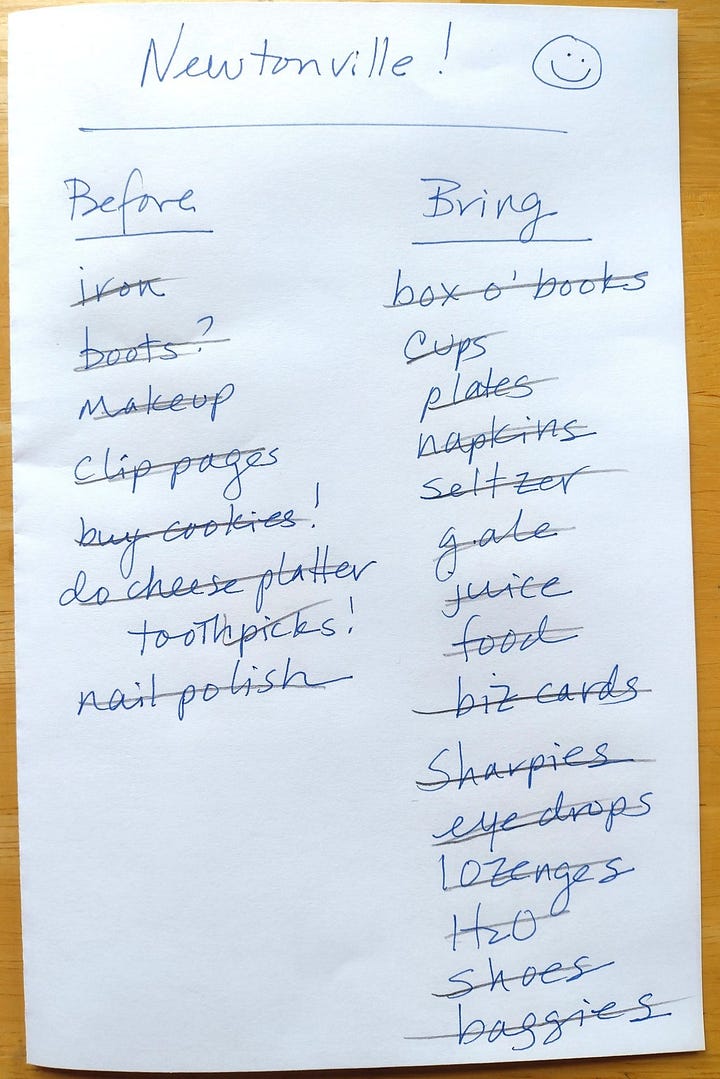 Newtonville!
Before
iron
boots?
Makeup
clip pages
buy cookies!
do cheese platter
toothpicks!
nail polish
Bring
box o' books
cups
plates
napkins
seltzer
g.ale
juice
food
biz cards
Sharpies
eye drops
lozenges
H2O
shoes
baggies